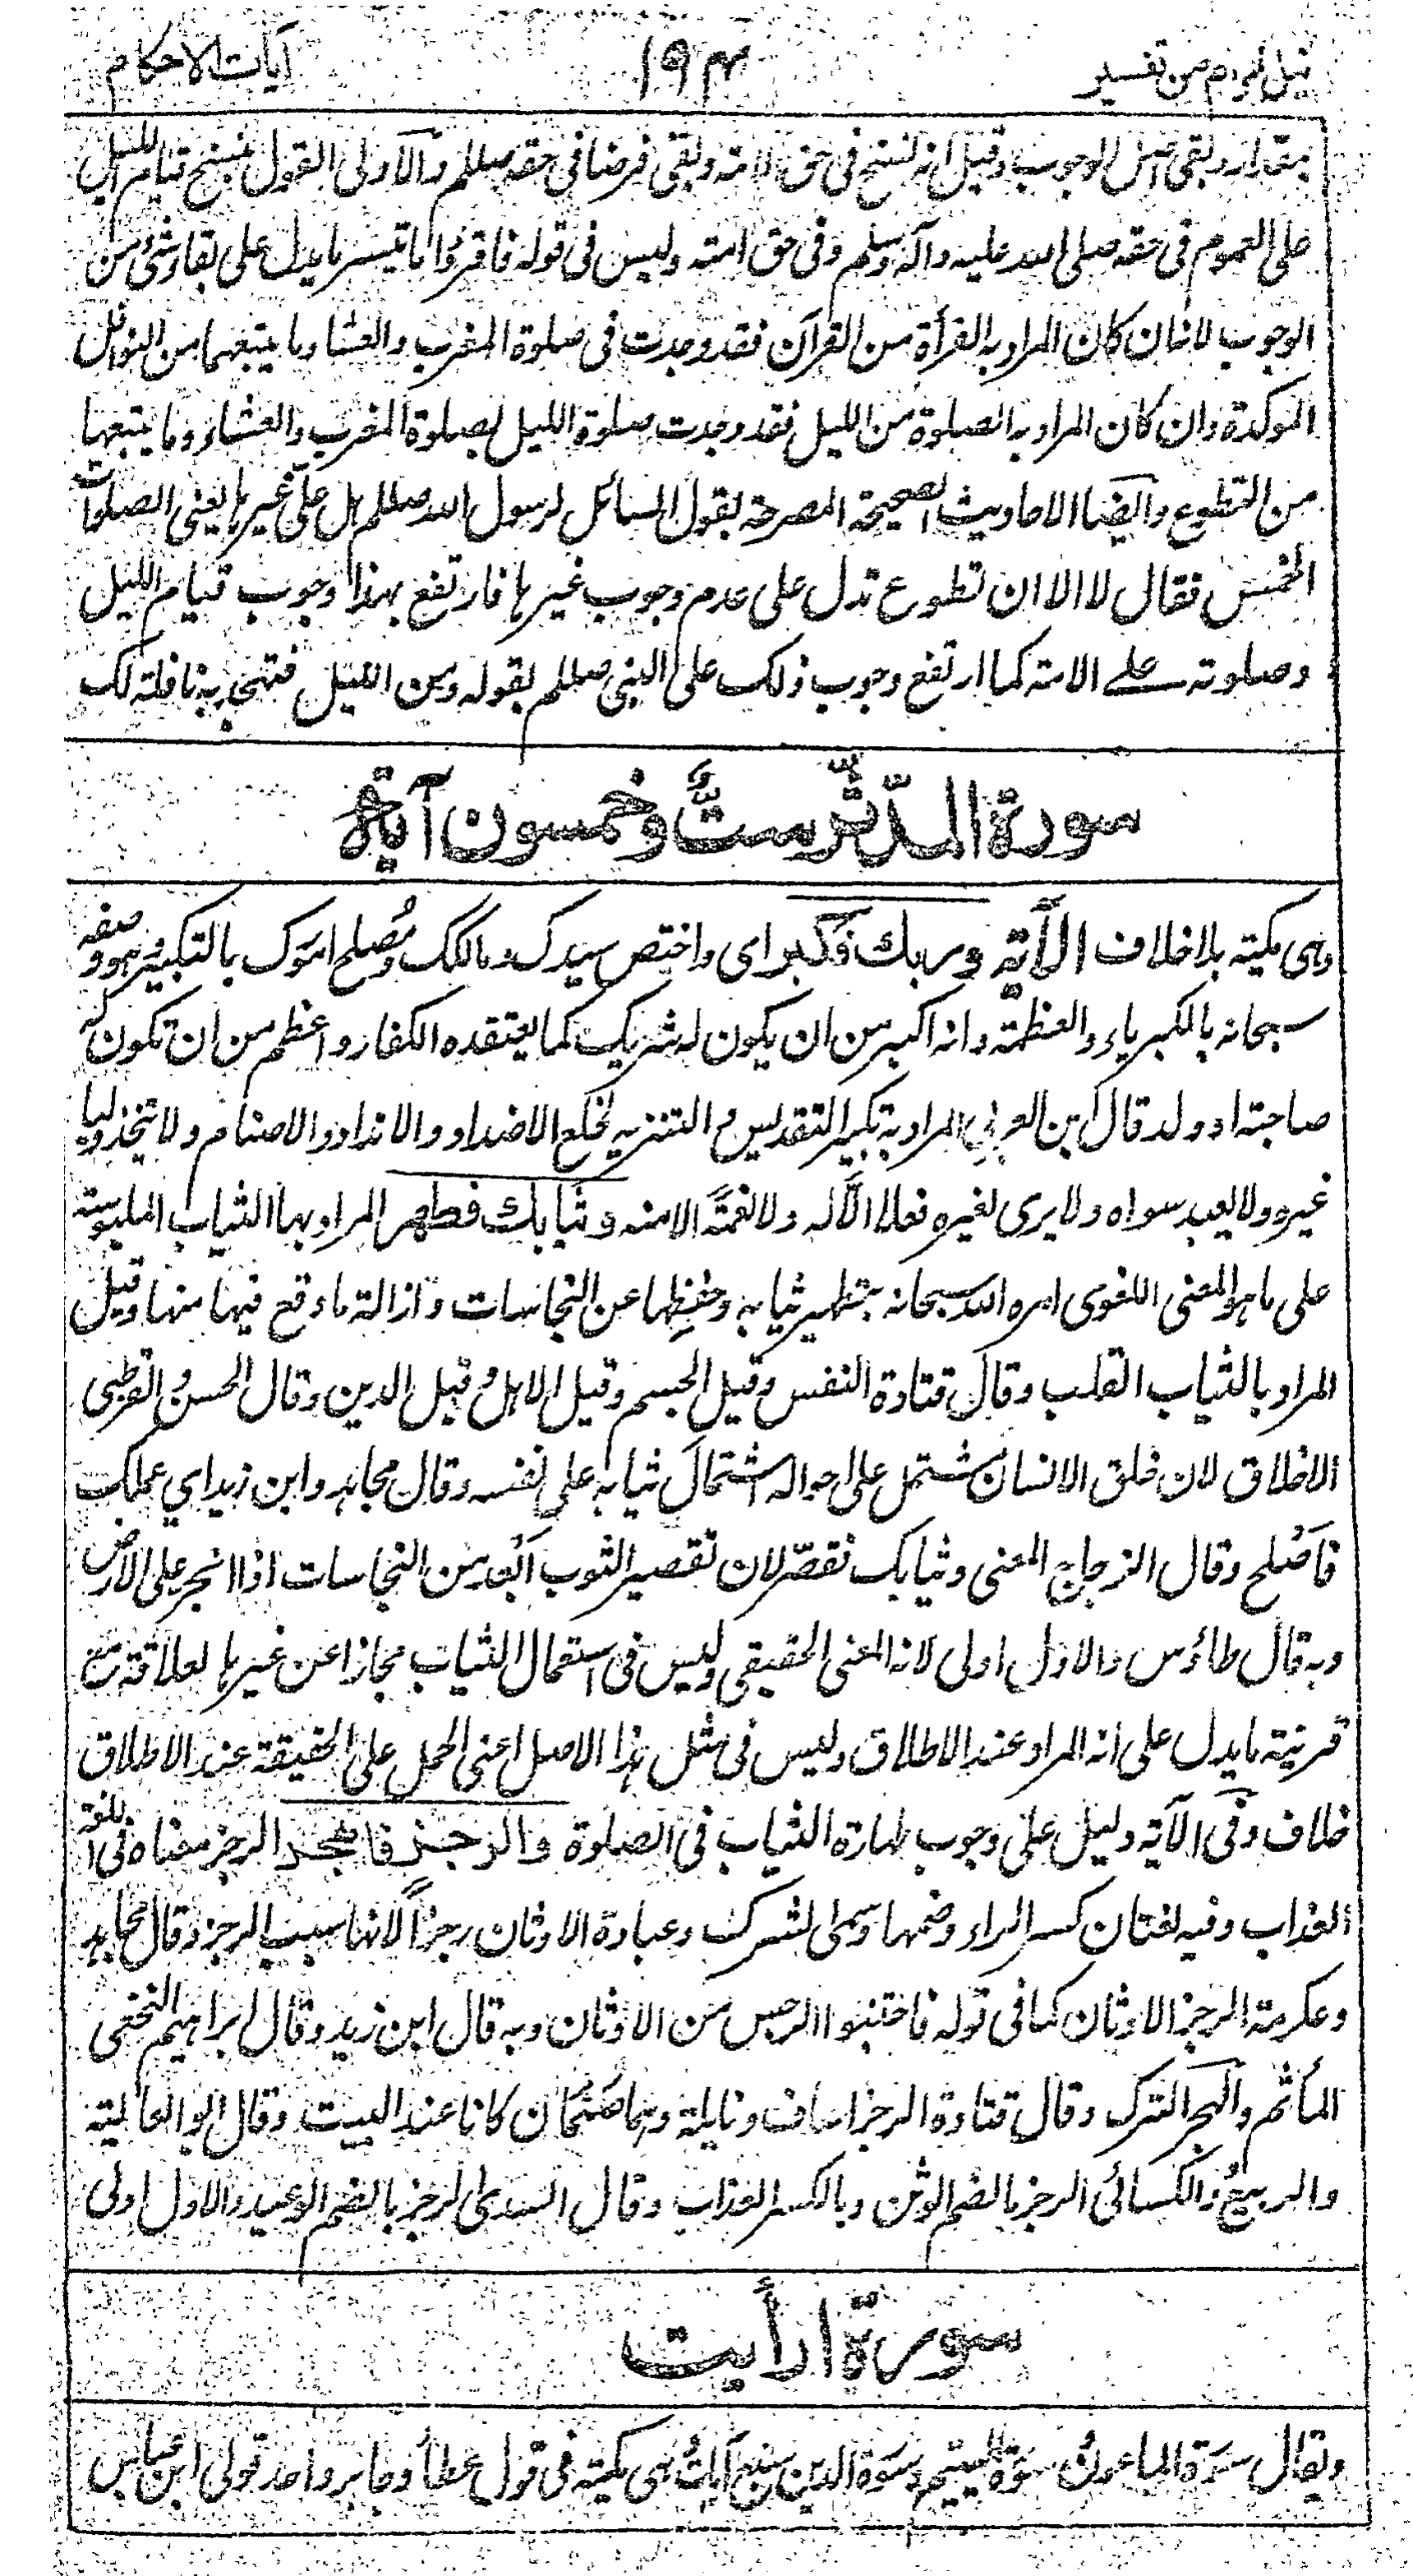 نيل المرام من تفسير ١٩٣ آيات الاحكام
بمقدار وبقى اصل الوجوب وقيل انه نسخ فى حق الامة وبقى فرضا فى حقه صللم والأولى القول بنسخ قيام الليل
على العموم فى حقه صلى الله عليه وآله وسلم وفى حق امته وليس فى قوله فاقرؤا ما تيسر ما يدل على بقاء شئ من
الوجوب لانه ان كان المراد به القرأة من القرآن فقد وجدت فى صلوة المغرب والعشاء وما يتبعهما من النوافل
الموكدة وان كان المراد به الصلوة من الليل فقد وجدت صلوة الليل بصلوة المغرب والعشاء وما يتبعهما
من التطوع وايضا الاحاديث الصحيحة المصرحة لقول السائل لرسول الله صللم هل علىّ غيرها يعنى الصلوات
الخمس فقال لا الا ان تطوع تدل على عدم وجوب غيرها فارتفع بهذا وجوب قيام الليل
وصلوته على الامة كما ارتفع وجوب ذلك على النبى صللم بقوله ومن الليل فتهجد به نافلة لك
سورة المدّثّر ستٌّ وخمسون آية
وهى مكية بلا خلاف الآية وربك فكبر اى واختص سيدك ومالكك ومُصلح امورك بالتكبير وهو وصفه
سبحانه بالكبرياء والعظمة وانه اكبر من ان يكون له شريك كما يعتقده الكفار واعظم من ان تكون له
صاحبة او ولد قال ابن العربي المراد به تكبير التقديس والتنزيه لخلع الاضداد والانداد والاصنام ولا تتخذ وليا
غيره ولا يعبد سواه ولا يرى لغيره فعلا الا له ولا نعمة الا منه وثيابك فطهر المراد بها الثياب الملبوسة
على ما هو المعنى اللغوى امره الله سبحانه بتطهير ثيابه وحفظها عن النجاسات وازالة ما وقع فيها منها وقيل
المراد بالثياب القلب وقال قتادة النفس وقيل الجسم وقيل الاهل وقيل الدين وقال الحسن والقرظى
الاخلاق لان خلق الانسان مشتمل على احواله اشتمال ثيابه على نفسه وقال مجاهد وابن زيد اي عملك
فاصلح وقال الزجاج المعنى وثيابك فقصّر لان تقصير الثوب ابعد من النجاسات اذا انجر على الارض
وبه قال طاؤس والاول اولى لانه المعنى الحقيقى وليس فى استعمال الثياب مجازا عن غيرها لعلاقة مع
قرينة ما يدل على انه المراد عند الاطلاق وليس فى مثل هذا الاصل اعنى الحمل على الحقيقة عند الاطلاق
خلاف وفى الآية دليل على وجوب طهارة الثياب فى الصلوة والرجز فاهجر الرجز معناه فى اللغة
العذاب وفيه لغتان كسر الراء وضمها وسمى الشرك وعبادة الاوثان رجزاً لانها سبب الرجز وقال مجاهد
وعكرمة الرجز الاوثان كما فى قوله فاجتنبوا الرجس من الاوثان وبه قال ابن زيد وقال ابراهيم النخعى
المأثم والهجر الترك وقال قتادة الرجز اساف ونايلة وهما صنمان كانا عند البيت وقال ابو العالية
والربيع والكسائى الرجز بالضم الوثن وبالكسر العذاب وقال السدى الرجز بالضم الوعيد والاول اولى
سورة ارأيت
ويقال سورة الماعون وسورة اليتيم وسورة الدين سبع آيات وهى مكية فى قول عطا وجابر واحد قولى ابن عباس